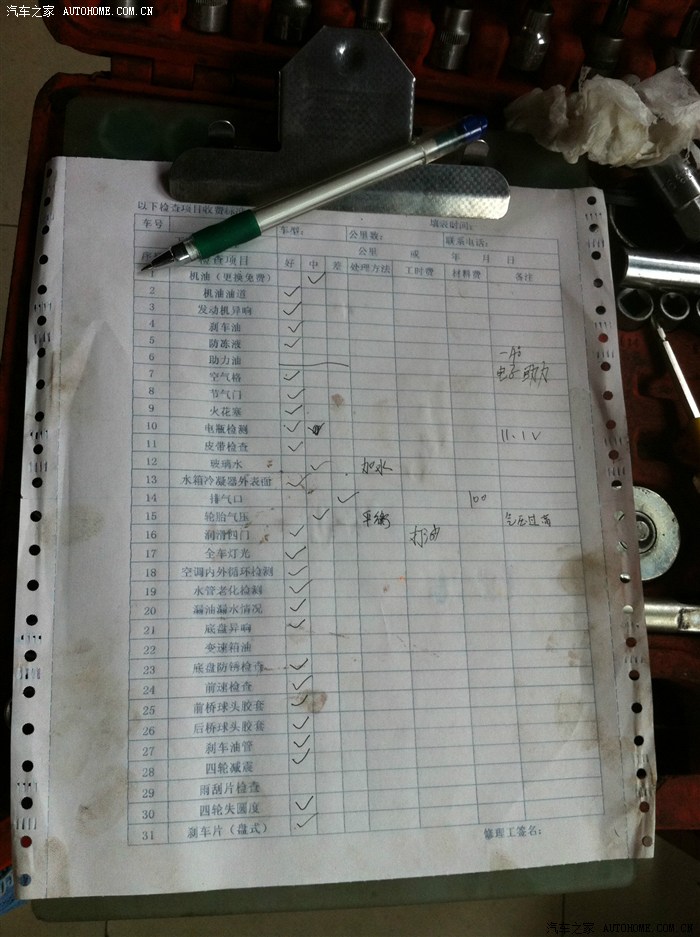 汽车之家 AUTOHOME.COM.CN
以下检查项目收费标
车号 车型： 公里数： 联系电话：
公里 或 年 月 日
检查项目 好 中 差 处理方法 工时费 材料费 备注
机油（更换免费） ✓
2 机油油道 ✓
3 发动机异响 ✓
4 刹车油 ✓
5 防冻液 ✓
6 助力油 电子助力
7 空气格 ✓
8 节气门 ✓
9 火花塞 ✓
10 电瓶检测 ✓ 11.1V
11 皮带检查 ✓
12 玻璃水 ✓ 加水
13 水箱冷凝器外表面 ✓
14 排气口 ✓ 100
15 轮胎气压 ✓ 平衡 气压过高
16 润滑四门 ✓ 打油
17 全车灯光 ✓
18 空调内外循环检测 ✓
19 水管老化检测 ✓
20 漏油漏水情况 ✓
21 底盘异响 ✓
22 变速箱油
23 底盘防锈检查 ✓
24 前速检查 ✓
25 前桥球头胶套 ✓
26 后桥球头胶套 ✓
27 刹车油管 ✓
28 四轮减震 ✓
29 雨刮片检查
30 四轮失圆度 ✓
31 刹车片（盘式） ✓
修理工签名：
汽车之家 AUTOHOME.COM.CN